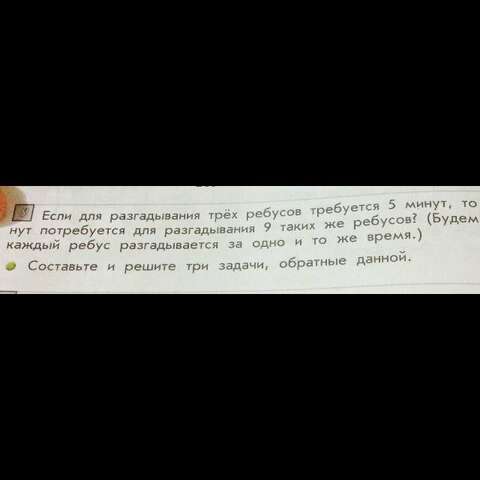 Если для разгадывания трёх ребусов требуется 5 минут, то
нут потребуется для разгадывания 9 таких же ребусов? (Будем
каждый ребус разгадывается за одно и то же время.)
Составьте и решите три задачи, обратные данной.